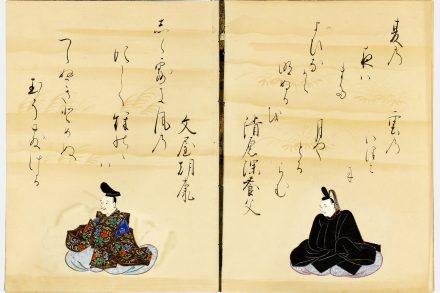 夏乃
夜ハ
また
よひなから
明ぬる
を
雲乃
いつこ
に
月や
とる
らむ
清原深養父
文屋朝康
しら露に風乃
吹しく秋の野ハ
つらぬきとめぬ
玉そちりける